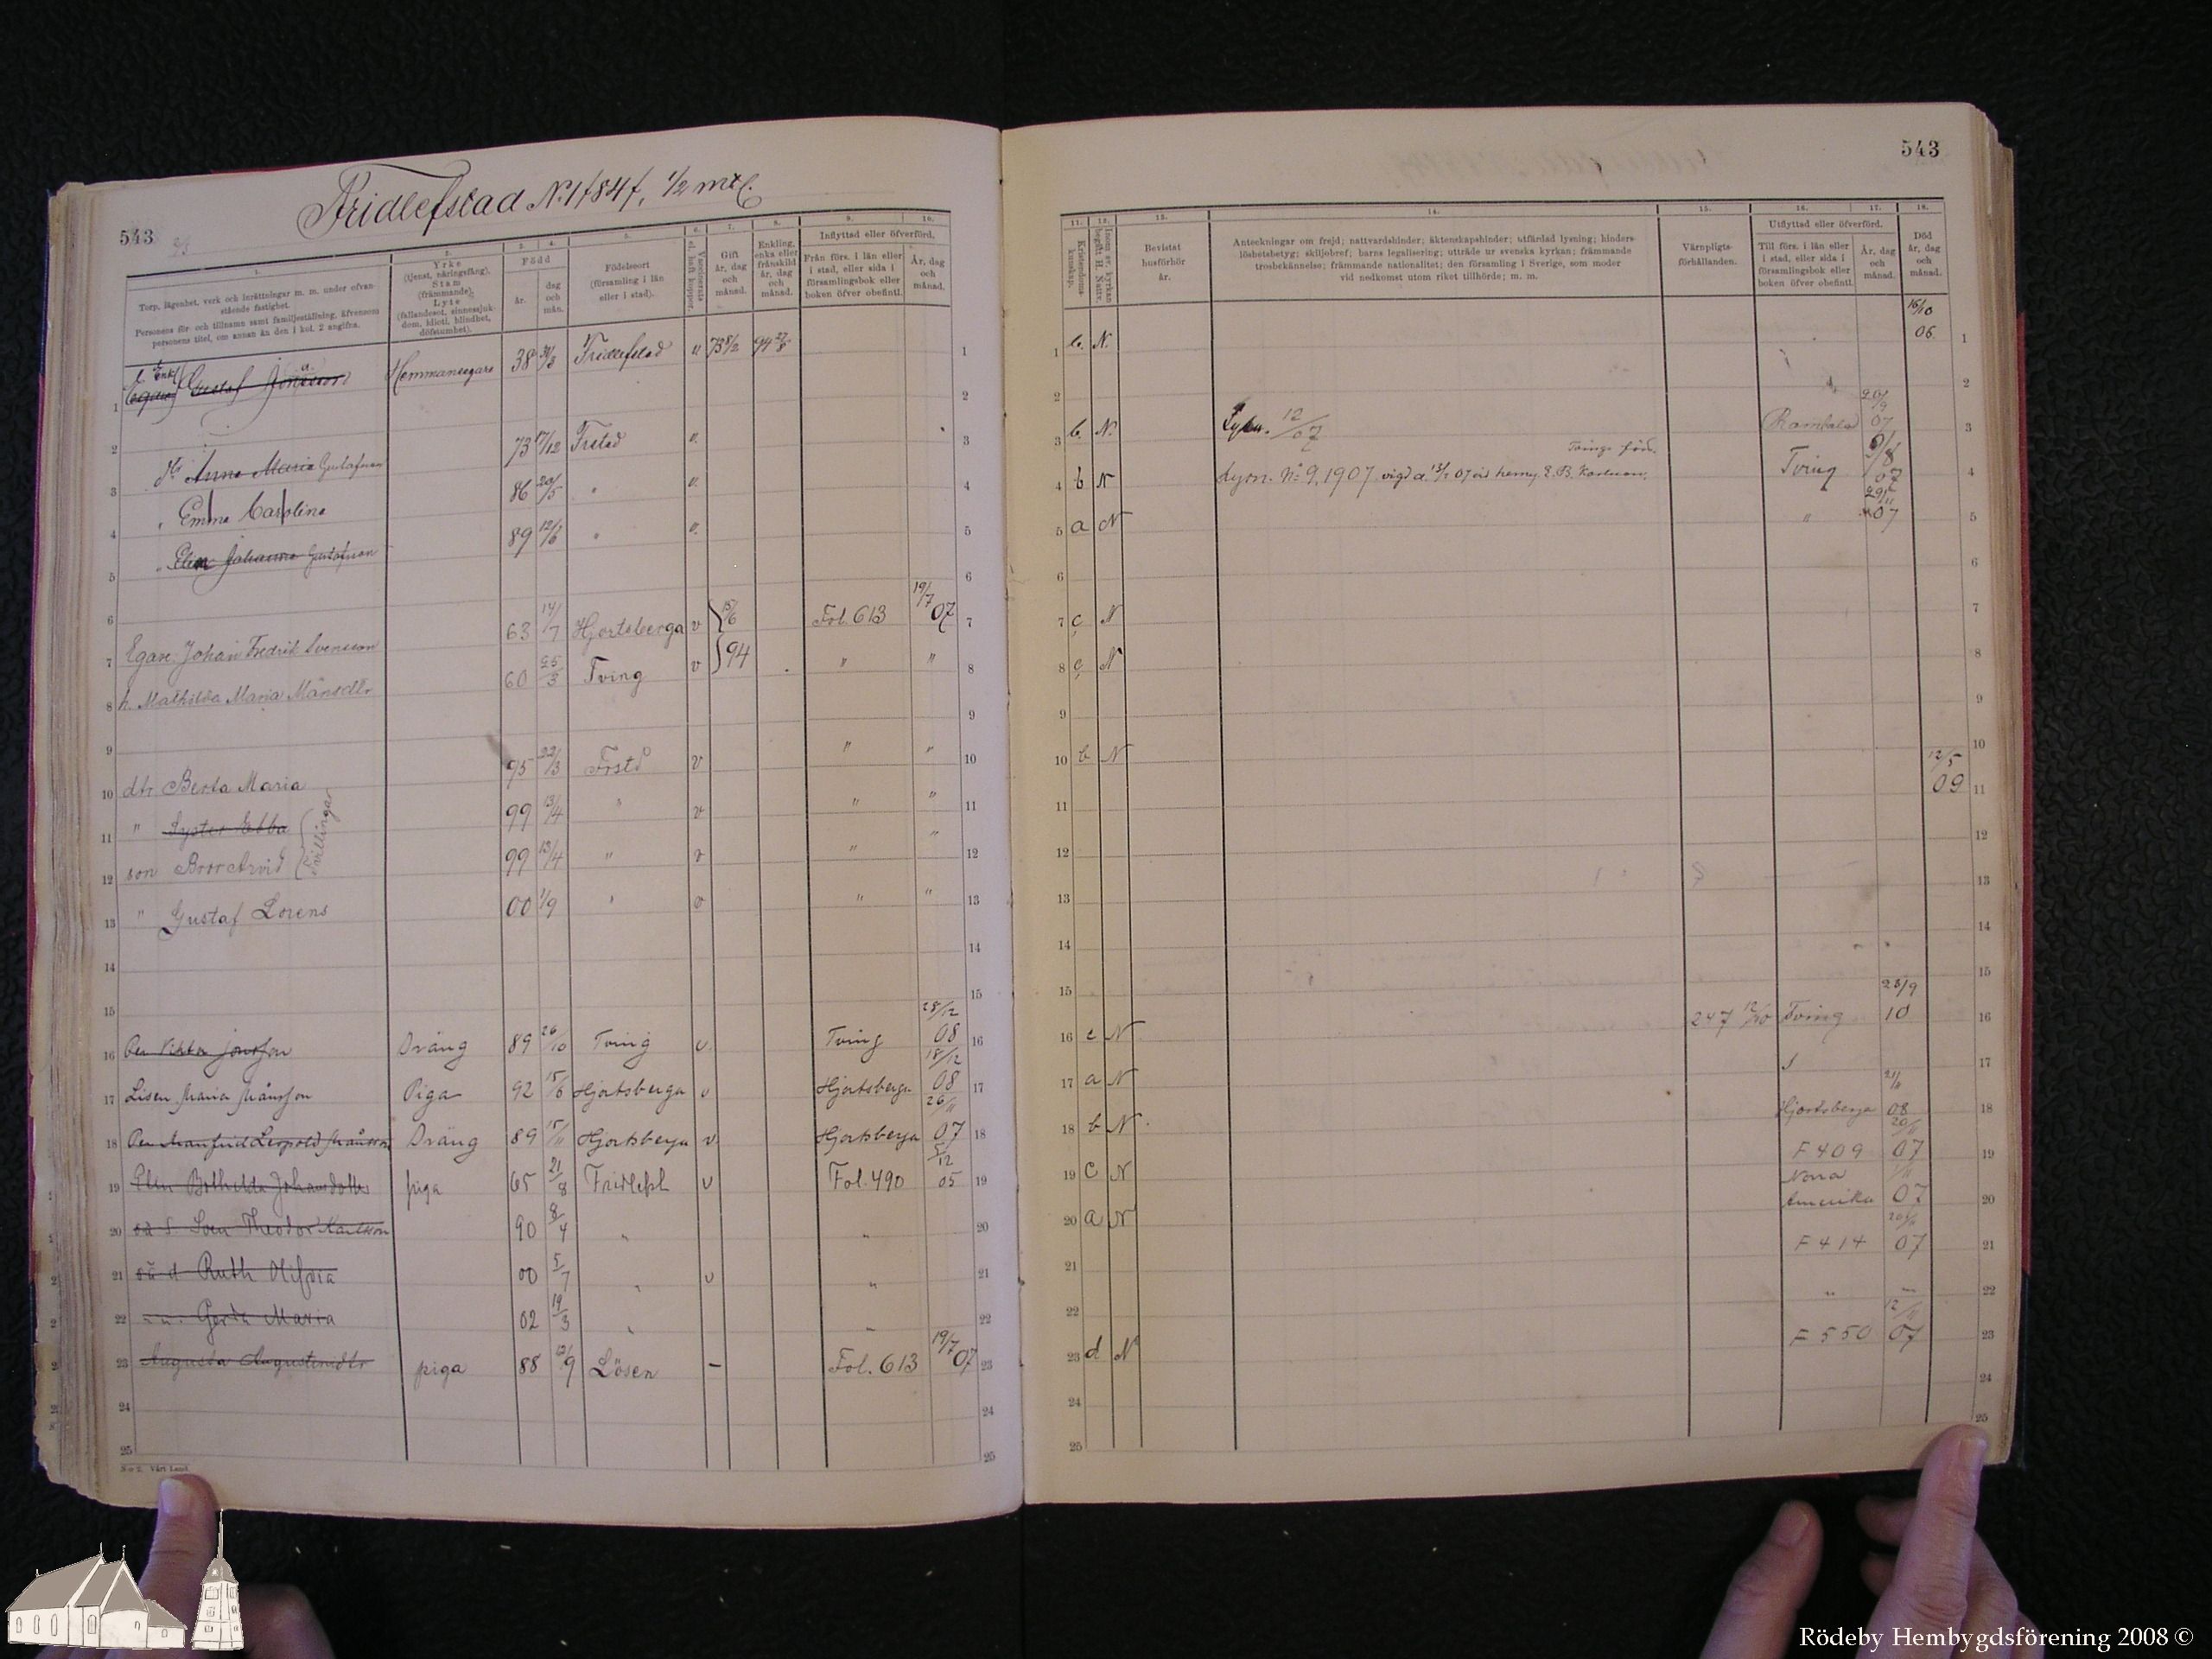 Fridlefstad No 17847, 1/2 mtl.
543
543
1. 2. 3. 4. 5. 6. 7. 8. 9. 10.
Torp, lägenhet, verk och inrättningar m. m. under ofvanstående fastighet.
Personens för- och tillnamn samt familjeställning, äfvensom personens titel, om annan än den i kol. 2 angifna.
Yrke (tjenst, näringsfång), Stam (främmande), Lyte (fallandesot, sinnessjukdom, idioti, blindhet, döfstumhet).
Född år. dag och mån.
Födelseort (församling i län eller i stad).
Gift år, dag och månad.
Enkling, enka eller frånskild år, dag och månad.
Inflyttad eller öfverförd.
Från förs. i län eller i stad, eller sida i församlingsbok eller boken öfver obefintl.
År, dag och månad.
11. 12. 13. 14. 15. 16. 17. 18.
Kristendomskunskap.
Bevistat husförhör år.
Anteckningar om frejd; nattvardshinder; äktenskapshinder; utfärdad lysning; hinderslöshetsbetyg; skiljobref; barns legalisering; utträde ur svenska kyrkan; främmande trosbekännelse; främmande nationalitet; den församling i Sverige, som moder vid nedkomst utom riket tillhörde; m. m.
Värnpligtsförhållanden.
Utflyttad eller öfverförd.
Till förs. i län eller i stad, eller sida i församlingsbok eller boken öfver obefintl.
År, dag och månad.
Död år, dag och månad.
1 Enkl. Gustaf Jonasson Hemmansegare 38 31/3 Fridlefstad v 73 8/2 99 27/8 1 b. N. 16/10 06. 1
2
3 Anna Maria Gustafsson 73 17/12 Frstad v. 3 b. N. 12/07 Ramdala 20/9 07 3
4 " Emma Carolina 86 20/5 " v. 4 b N Lysn. No 9, 1907 vigd d. 07 Tving 8 07 4
5 " Elin Johanna Gustafsson 89 12/6 " v. 5 a N " 29/11 07 5
6
7 Egare Johan Fredrik Svensson 63 14/7 Hjortsberga v 15/6 Fol. 613 19/7 07 7 c N 7
8 h. Mathilda Maria Månsdtr 60 25/3 Tving v 94 " " 8 c N 8
9
10 dtr Berta Maria 95 22/3 Frstd v " " 10 b N 10
11 " Syster Ebba 99 13/4 " v " " 11 12/5 09 11
12 son Bror Arvid 99 13/4 " v " " 12
Tvillingar
13 " Gustaf Lorens 00 1/9 " v " " 13
14
15
16 Per Viktor Jonsson Dräng 89 26/10 Tving v. Tving 28/12 08 16 c N 247 12/10 Tving 28/9 10 16
17 Lisen Maria Månsson Piga 92 15/6 Hjortsberga v Hjortsberga 18/12 08 17 a N 17
18 Per Manfred Leopold Månsson Dräng 89 15/11 Hjortsberga v Hjortsberga 26/11 07 18 b N Hjortsberga 21/11 08 18
19 Elin Bothilda Johansdotter piga 65 21/8 Fridlefst v Fol. 490 5/12 05 19 c N F 409 20/11 07 19
20 oä s. Sven Theodor Karlsson 90 8/4 " " 20 a N Norra Amerika 1/11 07 20
21 oä d Ruth Olifvia 00 5/7 " v " 21 F 414 20/11 07 21
22 Gerda Maria 02 19/3 " " 22 " " 22
23 Augusta Augustinidtr piga 88 /9 Lösen – Fol. 613 19/7 07 23 d N F 550 12/11 07 23
24
25
N:o 2. Vårt Land.
Rödeby Hembygdsförening 2008 ©